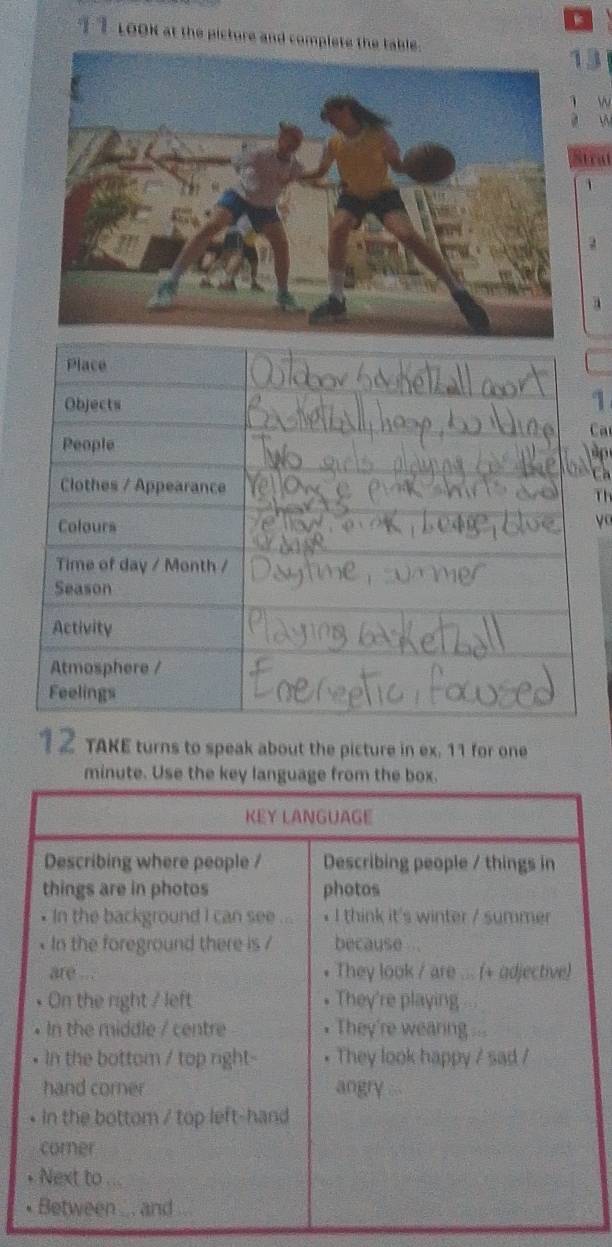 11 LOOK at the picture and complete the table.
13
1 W
2 W
Strat
1
2
3
Place
Outdoor basketball coort
Objects
Basketball, hoop, building
People
Two girls playing
Clothes / Appearance
Yellow e pink shirts and
shorts
Colours
Yellow, pink, beige, blue
orange
Time of day / Month /
Season
Daytime, summer
Activity
Playing basketball
Atmosphere /
Feelings
Eneregtic, focused
1
Ca
Th
yo
12 TAKE turns to speak about the picture in ex. 11 for one
minute. Use the key language from the box.
KEY LANGUAGE
Describing where people /
things are in photos
• In the background I can see ...
• In the foreground there is /
are ...
• On the right / left
• In the middle / centre
• In the bottom / top right-
hand corner
• In the bottom / top left-hand
corner
• Next to ...
• Between ... and ...
Describing people / things in
photos
• I think it's winter / summer
because ...
• They look / are ... (+ adjective)
• They're playing ...
• They're wearing ...
• They look happy / sad /
angry ...